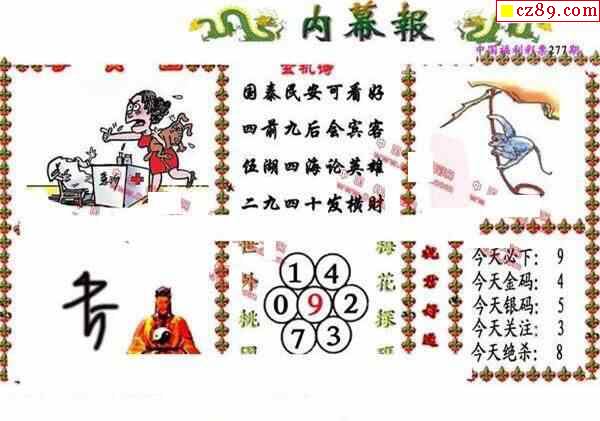 cz89.com
内幕報
中国福利彩票277期
玄机诗
国泰民安可看好
四前九后会宾客
伍湖四海论英雄
二九四十发横财
世外桃园
1 4
0 9 2
7 3
梅花探码
祝君好运
今天必下: 9
今天金码: 4
今天银码: 5
今天关注: 3
今天绝杀: 8